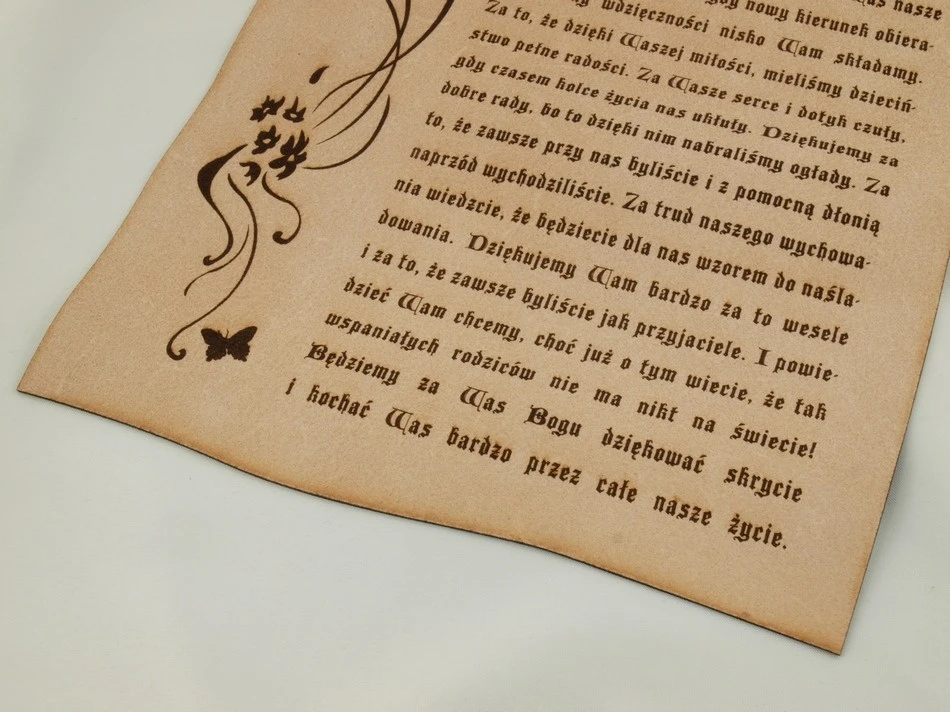 nasze
gdy nowy kierunek obiera-
wdzięczności nisko Wam składamy.
Za to, że dzięki Waszej miłości, mieliśmy dzieciń-
stwo pełne radości. Za Wasze serce i dotyk czuły,
gdy czasem kolce życia nas ukłuły. Dziękujemy za
dobre rady, bo to dzięki nim nabraliśmy ogłady. Za
to, że zawsze przy nas byliście i z pomocną dłonią
naprzód wychodziliście. Za trud naszego wychowa-
nia wiedzcie, że będziecie dla nas wzorem do naśla-
dowania. Dziękujemy Wam bardzo za to wesele
i za to, że zawsze byliście jak przyjaciele. I powie-
dzieć Wam chcemy, choć już o tym wiecie, że tak
wspaniałych rodziców nie ma nikt na świecie!
Będziemy za Was Bogu dziękować skrycie
i kochać Was bardzo przez całe nasze życie.